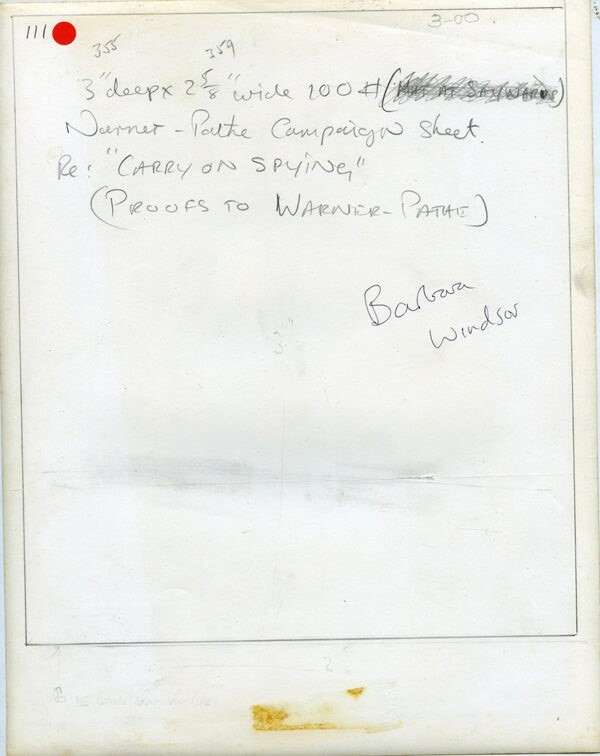 111
3-00
355 359
3" deep x 2 5/8" wide 100 # (
Warner-Pathe Campaign Sheet.
Re: "CARRY ON SPYING"
(PROOFS TO WARNER-PATHE)
Barbara
Windsor
3"
2